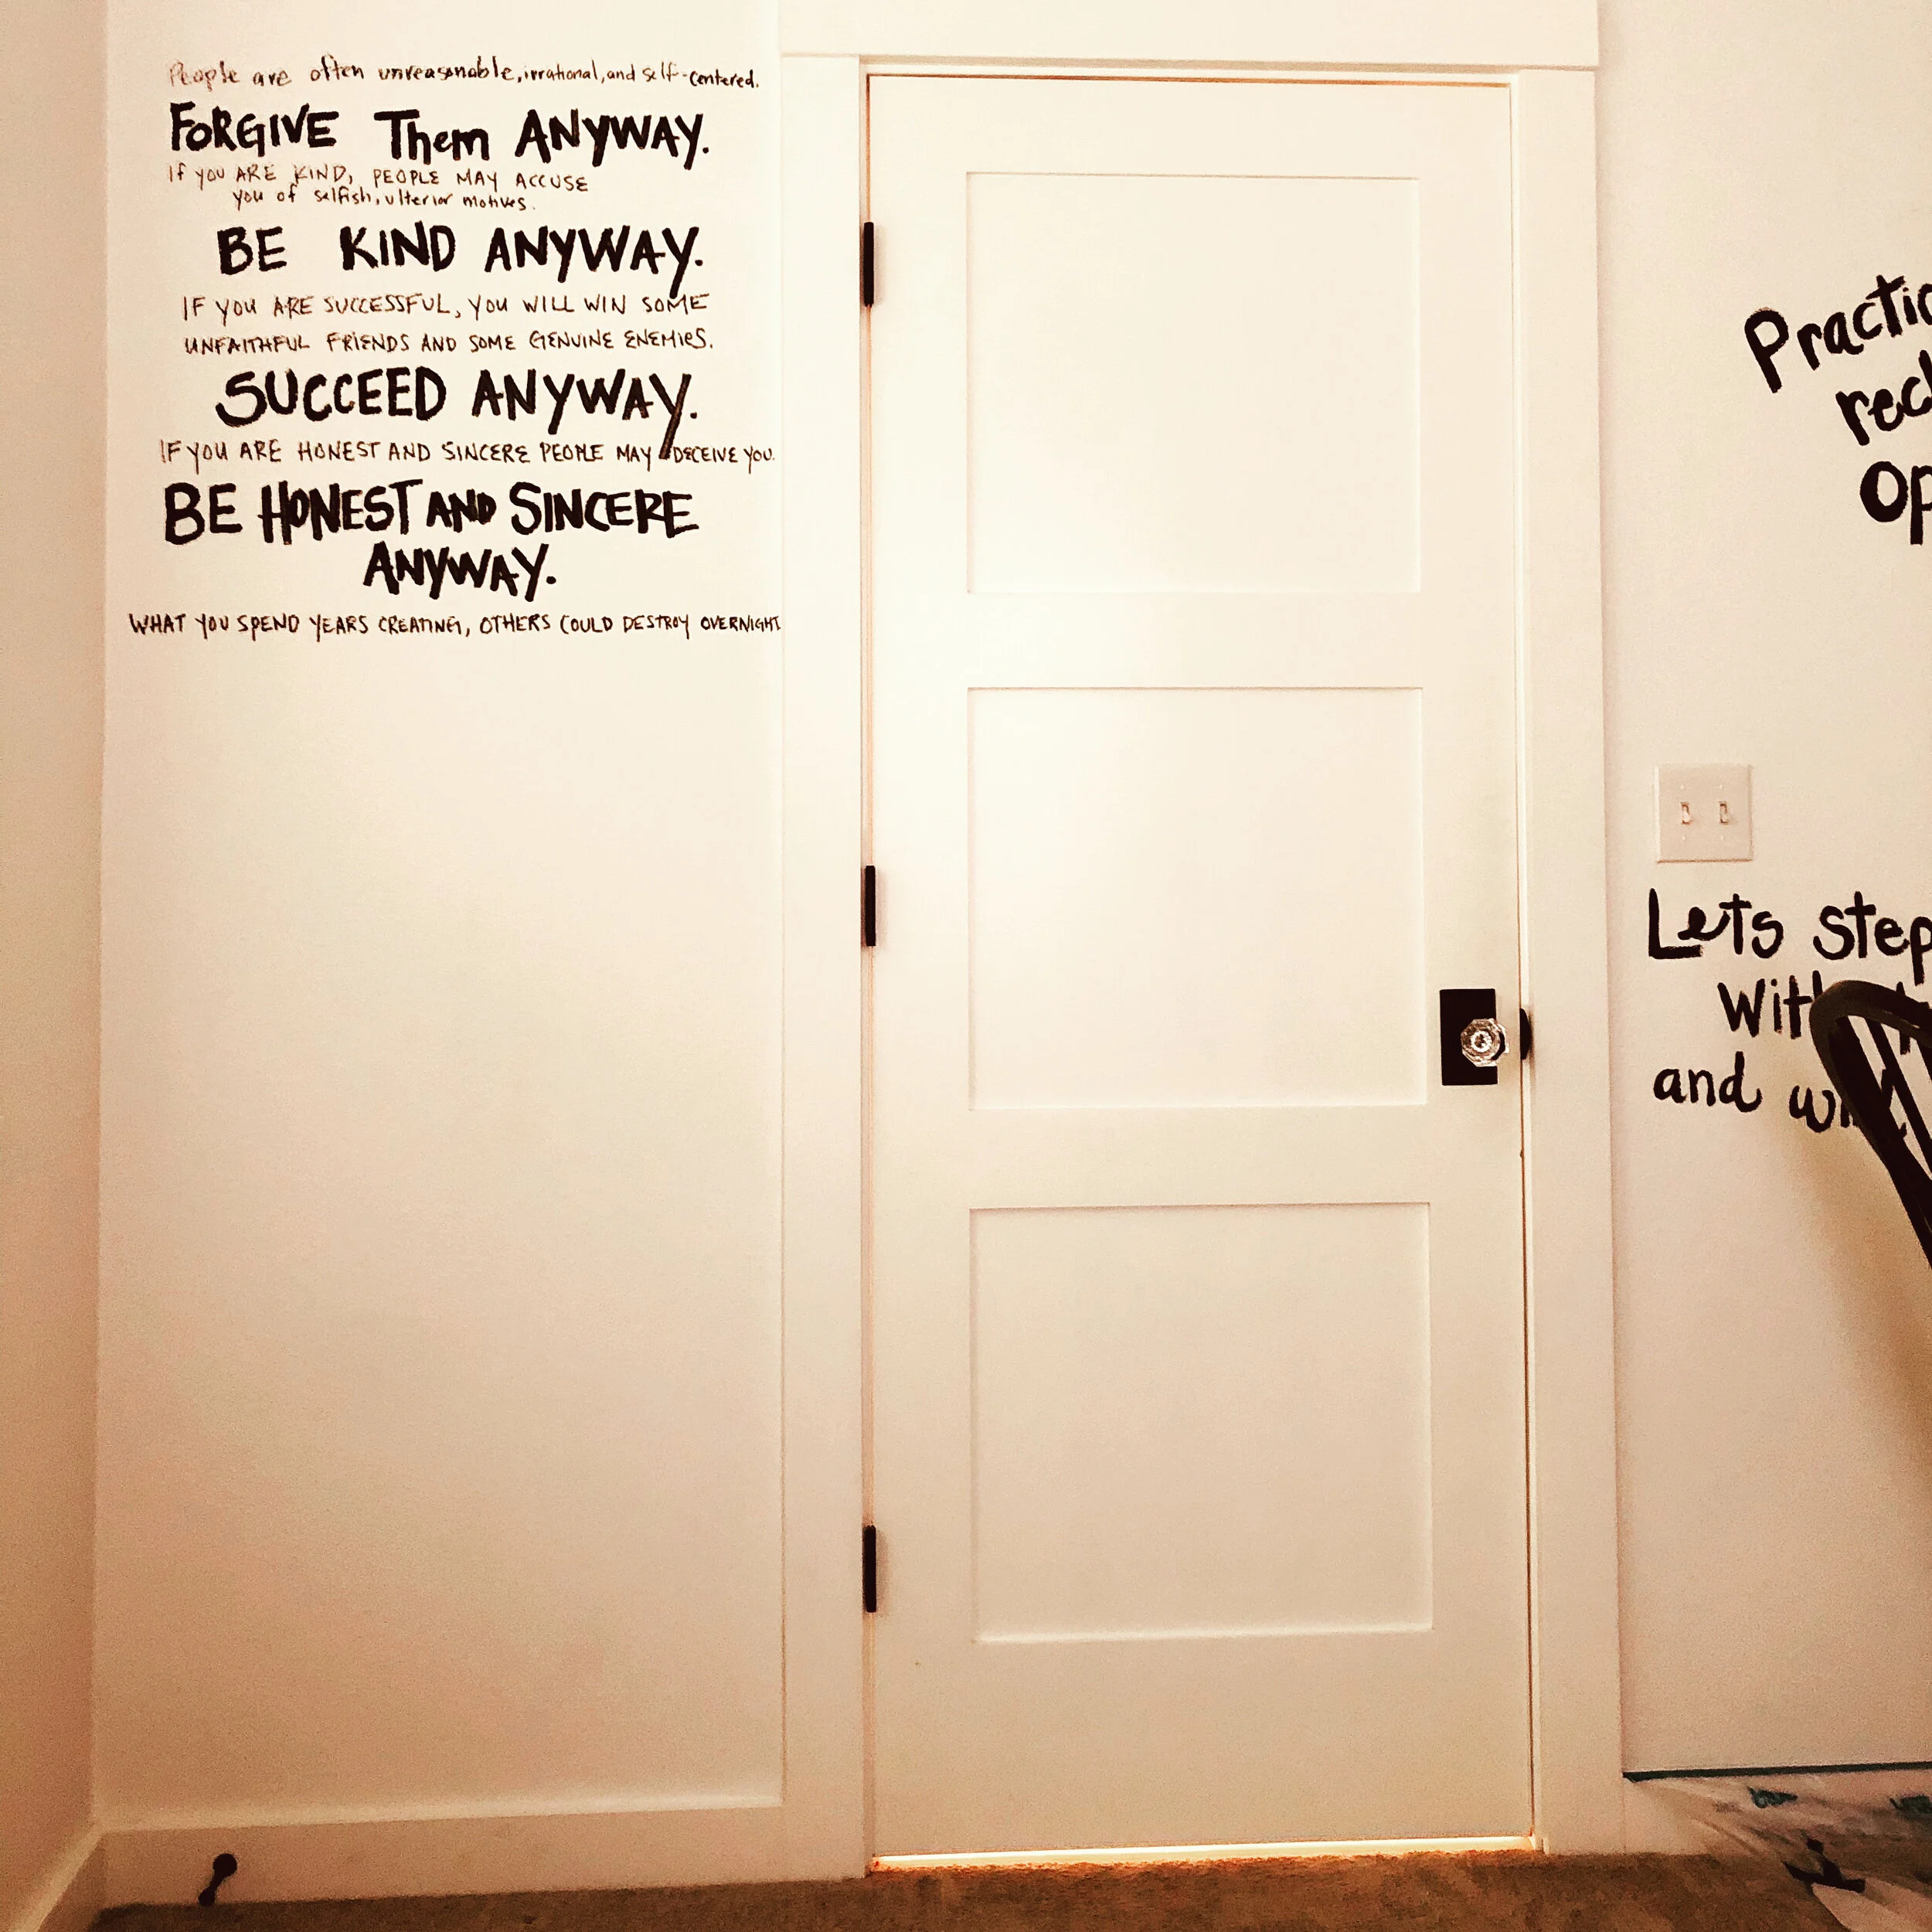 People are often unreasonable, irrational, and self-centered.
FORGIVE Them ANYWAY.
If you ARE KIND, PEOPLE MAY ACCUSE
you of selfish, ulterior motives.
BE KIND ANYWAY.
IF YOU ARE SUCCESSFUL, YOU WILL WIN SOME
UNFAITHFUL FRIENDS AND SOME GENUINE ENEMIES.
SUCCEED ANYWAY.
IF YOU ARE HONEST AND SINCERE PEOPLE MAY DECEIVE YOU.
BE HONEST AND SINCERE
ANYWAY.
WHAT YOU SPEND YEARS CREATING, OTHERS COULD DESTROY OVERNIGHT
Lets step
and